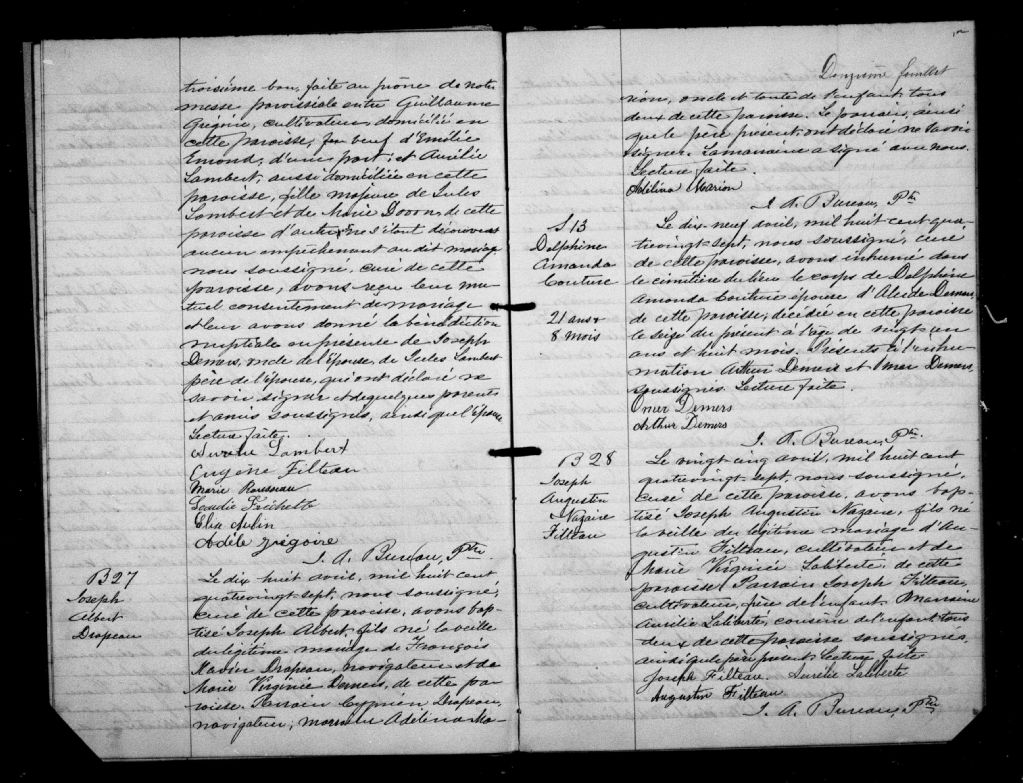 troisième ban, faite au prône de notre
messe paroissiale entre Guillaume
Grégoire, cultivateur, domicilié en
cette paroisse, feu veuf d'Emélie
Emond, d'une part; et Aurélie
Lambert, aussi domiciliée en cette
paroisse, fille majeure de Jules
Lambert et de Marie Dovon, de cette
paroisse d'autre. Ne s'étant découvert
aucun empêchement au dit mariage
nous soussigné, curé de cette
paroisse, avons reçu leur mu-
tuel consentement de mariage
et leur avons donné la bénédiction
nuptiale en présence de Joseph
Demers, oncle de l'épouse, de Jules Lambert
père de l'épouse, qui ont déclaré ne
savoir signer et de quelques parents
et amis soussignés, ainsi que l'épouse
Lecture faite.
Aurélie Lambert
Eugène Filteau
Marie Rousseau
Fréchette
Elia Aubin
Adèle Grégoire
J. A. Bureau, Ptre
B 27
Joseph
Albert
Drapeau
Le dix huit avril, mil huit cent
quatrevingt sept, nous soussigné,
curé de cette paroisse, avons bap-
tisé Joseph Albert, fils né la veille
du légitime mariage de François
Xavier Drapeau, navigateur et de
Marie Virginie Demers, de cette pa-
roisse. Parrain Cyprien Drapeau,
navigateur; marraine Adélina Ma-
Douzième feuillet
rion, oncle et tante de l'enfant, tous
deux de cette paroisse. Le parrain, ainsi
que le père présent, ont déclaré ne savoir
signer. La marraine a signé avec nous.
Lecture faite.
Adélina Marion
J. A. Bureau, Ptre
S 13
Delphine
Amanda
Couture
21 ans &
8 mois
Le dix-neuf avril, mil huit cent qua-
trevingt-sept, nous soussigné, curé
de cette paroisse, avons inhumé dans
le cimetière du lieu le corps de Delphine
Amanda Couture épouse d'Alcide Demers,
de cette paroisse, décédée en cette paroisse
le seize du présent à l'âge de vingt un
ans et huit mois. Présents à l'inhu-
mation Arthur Demers et Omer Demers,
soussignés. Lecture faite.
Omer Demers
Arthur Demers
J. A. Bureau, Ptre.
B 28
Joseph
Augustin
Nazaire
Filteau
Le vingt cinq avril, mil huit cent
quatrevingt sept, nous soussigné,
curé de cette paroisse, avons bap-
tisé Joseph Augustin Nazaire, fils né
la veille du légitime mariage d'Au-
gustin Filteau, cultivateur et de
Marie Virginie Laliberté, de cette
paroisse. Parrain Joseph Filteau,
cultivateur, frère de l'enfant. Marraine
Aurélie Laliberté, cousine de l'enfant, tous
deux de cette paroisse soussignés,
ainsi que le père présent. Lecture faite
Joseph Filteau Aurélie Laliberté
Augustin Filteau
J. A. Bureau, Ptre